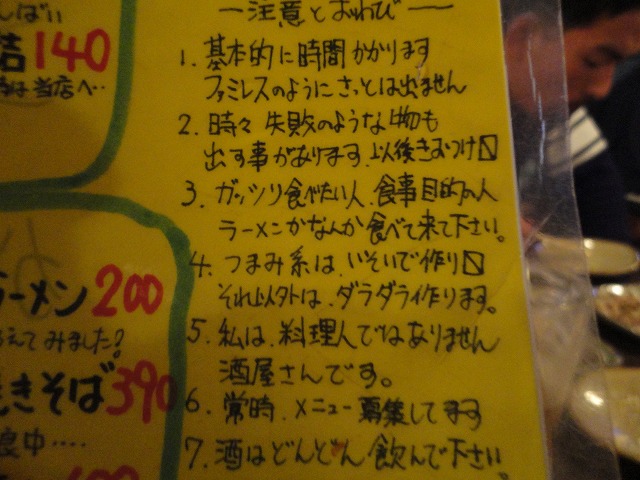 しばい
140
当店へ‥
ラーメン 200
えてみました?
きそば 390
中‥‥
ー注意とおわびー
1. 基本的に時間かかります
ファミレスのようにさっとは出ません
2. 時々失敗のような物も
出す事があります。以後きおつけ〼
3. ガッツリ食べたい人、食事目的の人
ラーメンかなんか食べて来て下さい。
4. つまみ系は、いそいで作り〼
それ以外は、ダラダラ作ります。
5. 私は、料理人ではありません
酒屋さんです。
6. 常時、メニュー募集してます
7. 酒はどんどん飲んで下さい。